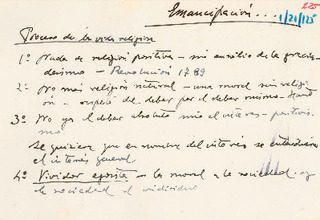 Emancipación... 225
1/21/125
Proceso de la vida religiosa
1º grado de religión positiva – sin auxilio de la
– Revolución 1789
2º no mas religión natural – una moral sin religi
ón – del deber por el deber mismo – Kant
3º No ya el deber absoluto sino el interes – positivis
mo
Se quisiera que en nombre del interés se
el interés general.
4º Vividor egoista – la moral a la sociedad
la sociedad el individuo